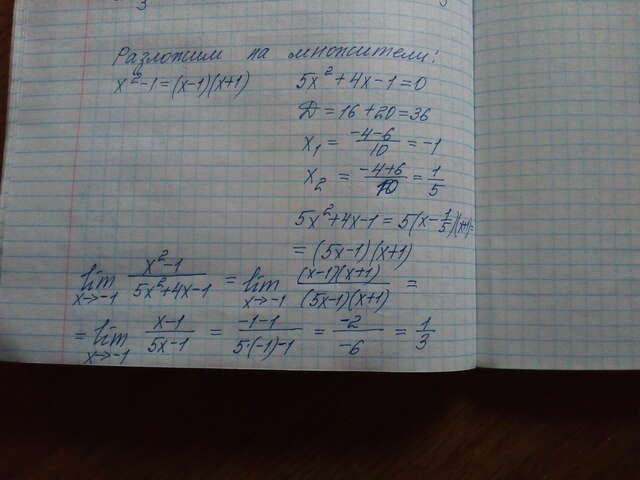 3
Разложим на множители:
x²-1=(x-1)(x+1)
5x²+4x-1=0
D=16+20=36
x₁ = (-4-6)/10 = -1
x₂ = (-4+6)/10 = 1/5
5x²+4x-1 = 5(x-1/5)(x+1)=
= (5x-1)(x+1)
lim x→-1 (x²-1)/(5x²+4x-1) = lim x→-1 ((x-1)(x+1))/((5x-1)(x+1)) =
= lim x→-1 (x-1)/(5x-1) = (-1-1)/(5·(-1)-1) = -2/-6 = 1/3